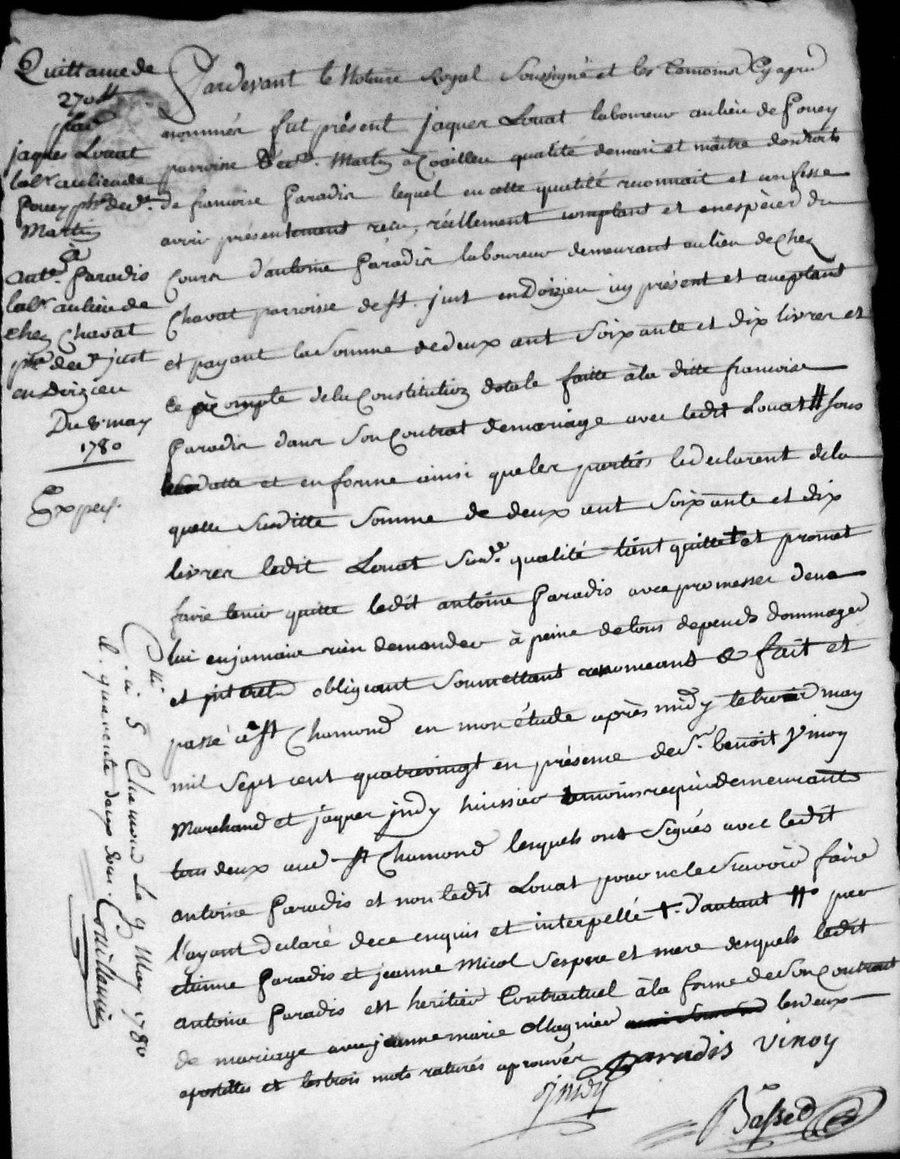 Quittance de
270 ₶
par
jaques Louat
lab.r au lieu de
Pouey p.sse de s.t
Martin
à
ant.e Paradis
lab.r au lieu de
chez Chavat
p.sse de s.t just
en Doizieu
Du 8 may
1780
Expéd.
C.llé à S.t Chamond Le 9 May 1780
R. quarente deux sous
Pardevant le Notaire Royal Soussigné et les temoins Cy apres
nommés fut présent jaques Louat laboureur au lieu de Pouey
parroise de s.t Martin à Coaillieu qualité de mari et maitre des droits
de francoise Paradis lequel en cette qualité reconnait et confesse
avoir présentement recu, réellement comptant et en espèces du
Cours d'antoine Paradis laboureur demeurant au lieu de Chez
Chavat parroise de st. just en Doizieu icy présent et aceptant
et payant la Somme de deux cent Soixante et dix livres et
ce à Compte de la Constitution dotale faitte à la ditte francoise
Paradis dans Son Contrat de mariage avec ledit Louat ⧺ sous
Sa datte et en forme ainsi que les parties le declarent de la
quelle Susditte Somme de deux cent Soixante et dix
livres ledit Louat Sud.e qualité tient quitte ┼ et promet
faire tenir quitte ledit antoine Paradis avec promesses de ne
lui en jamais rien demander à peine de tous depends dommages
et interets obligeant Soumettant renonceant &c fait et
passé à St Chamond en mon étude après midy le huit may
mil Sept cent quatrevingt en présence de s.r benoit Vinoy
Marchand et jaques jndy huissier temoins requis demeurants
tous deux aud. St Chamond lesquels ont Signés avec ledit
antoine Paradis et non ledit Louat pour ne le Scavoir faire
l'ayant declaré de ce enquis et interpellé ┼. d'autant ⧺ par
etienne Paradis et jeanne Micol Ses pere et mere desquels ledit
antoine Paradis est heritier Contractuel à la forme de Son Contract
de mariage avec jeanne marie Ollagnier les deux
apostilles et les trois mots raturés aprouvés
Paradis Vinoy
jndy
Basset